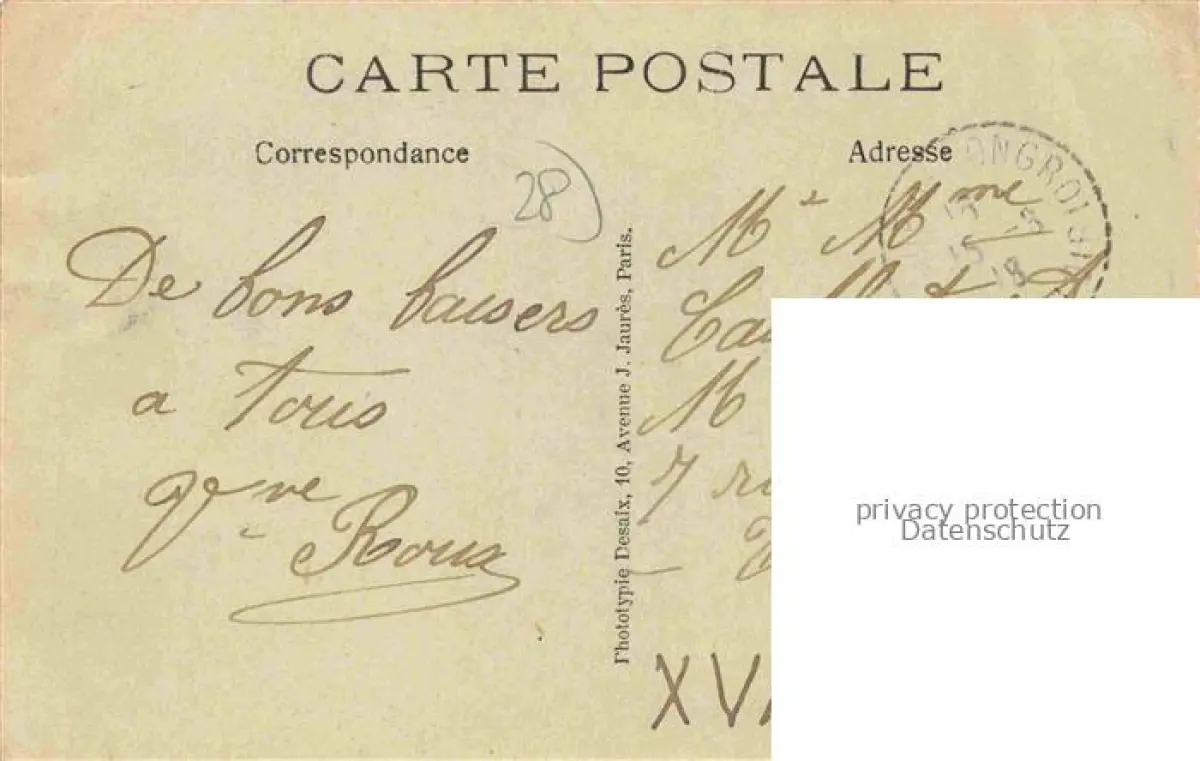 CARTE POSTALE
Correspondance
Adresse
28
De bons baisers
a tous
Roux
Phototypie Desaix, 10, Avenue J. Jaurès, Paris.
M & Mme
M
7
XV
privacy protection
Datenschutz